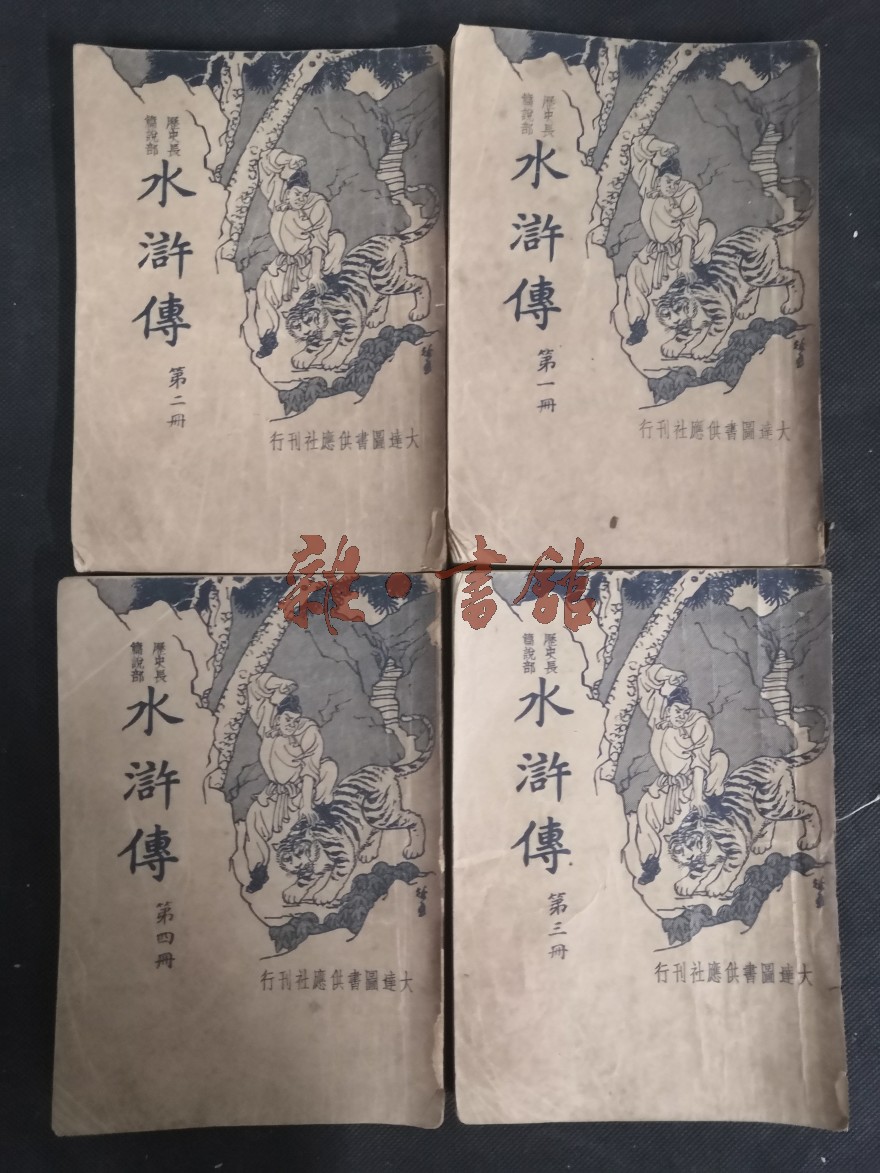 歷史長
篇說部
水滸傳
第一冊
大達圖書供應社刊行
歷史長
篇說部
水滸傳
第二冊
大達圖書供應社刊行
雜·書館
歷史長
篇說部
水滸傳
第三冊
大達圖書供應社刊行
歷史長
篇說部
水滸傳
第四冊
大達圖書供應社刊行